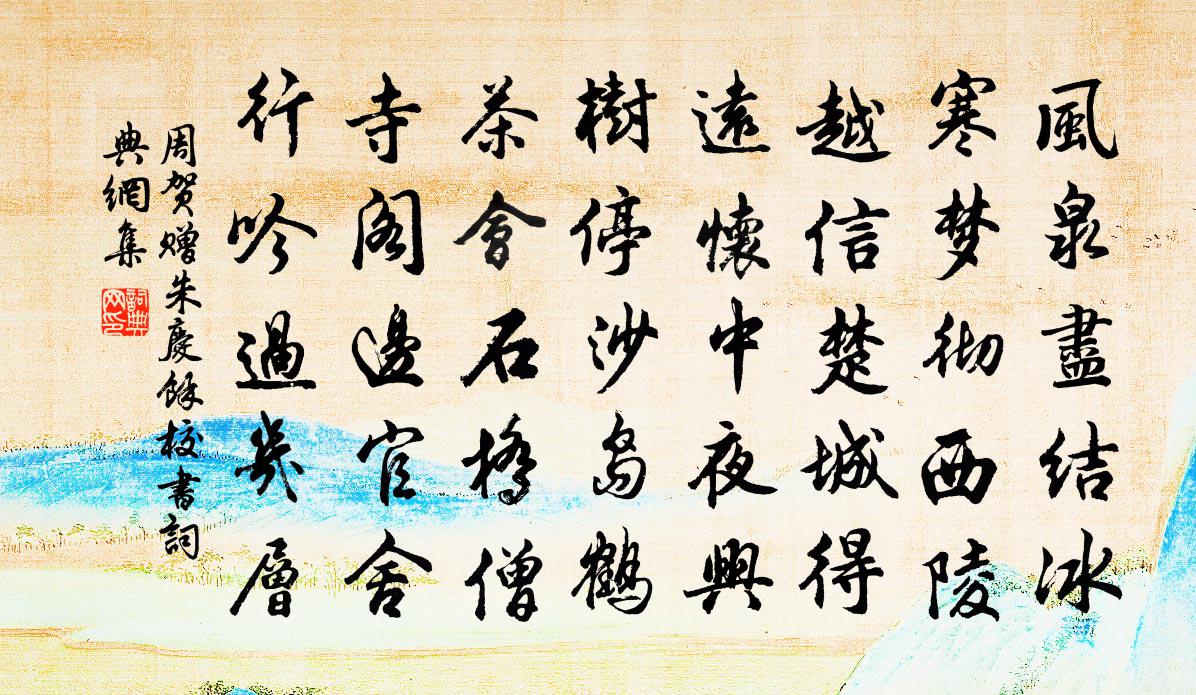 風泉盡结冰
寒梦彻西陵
越信楚城得
遠懷中夜興
樹停沙岛鹤
茶會石橋僧
寺阁邊官舍
行吟過幾層
周贺赠朱慶餘校書詞
典網集
詞典
网印